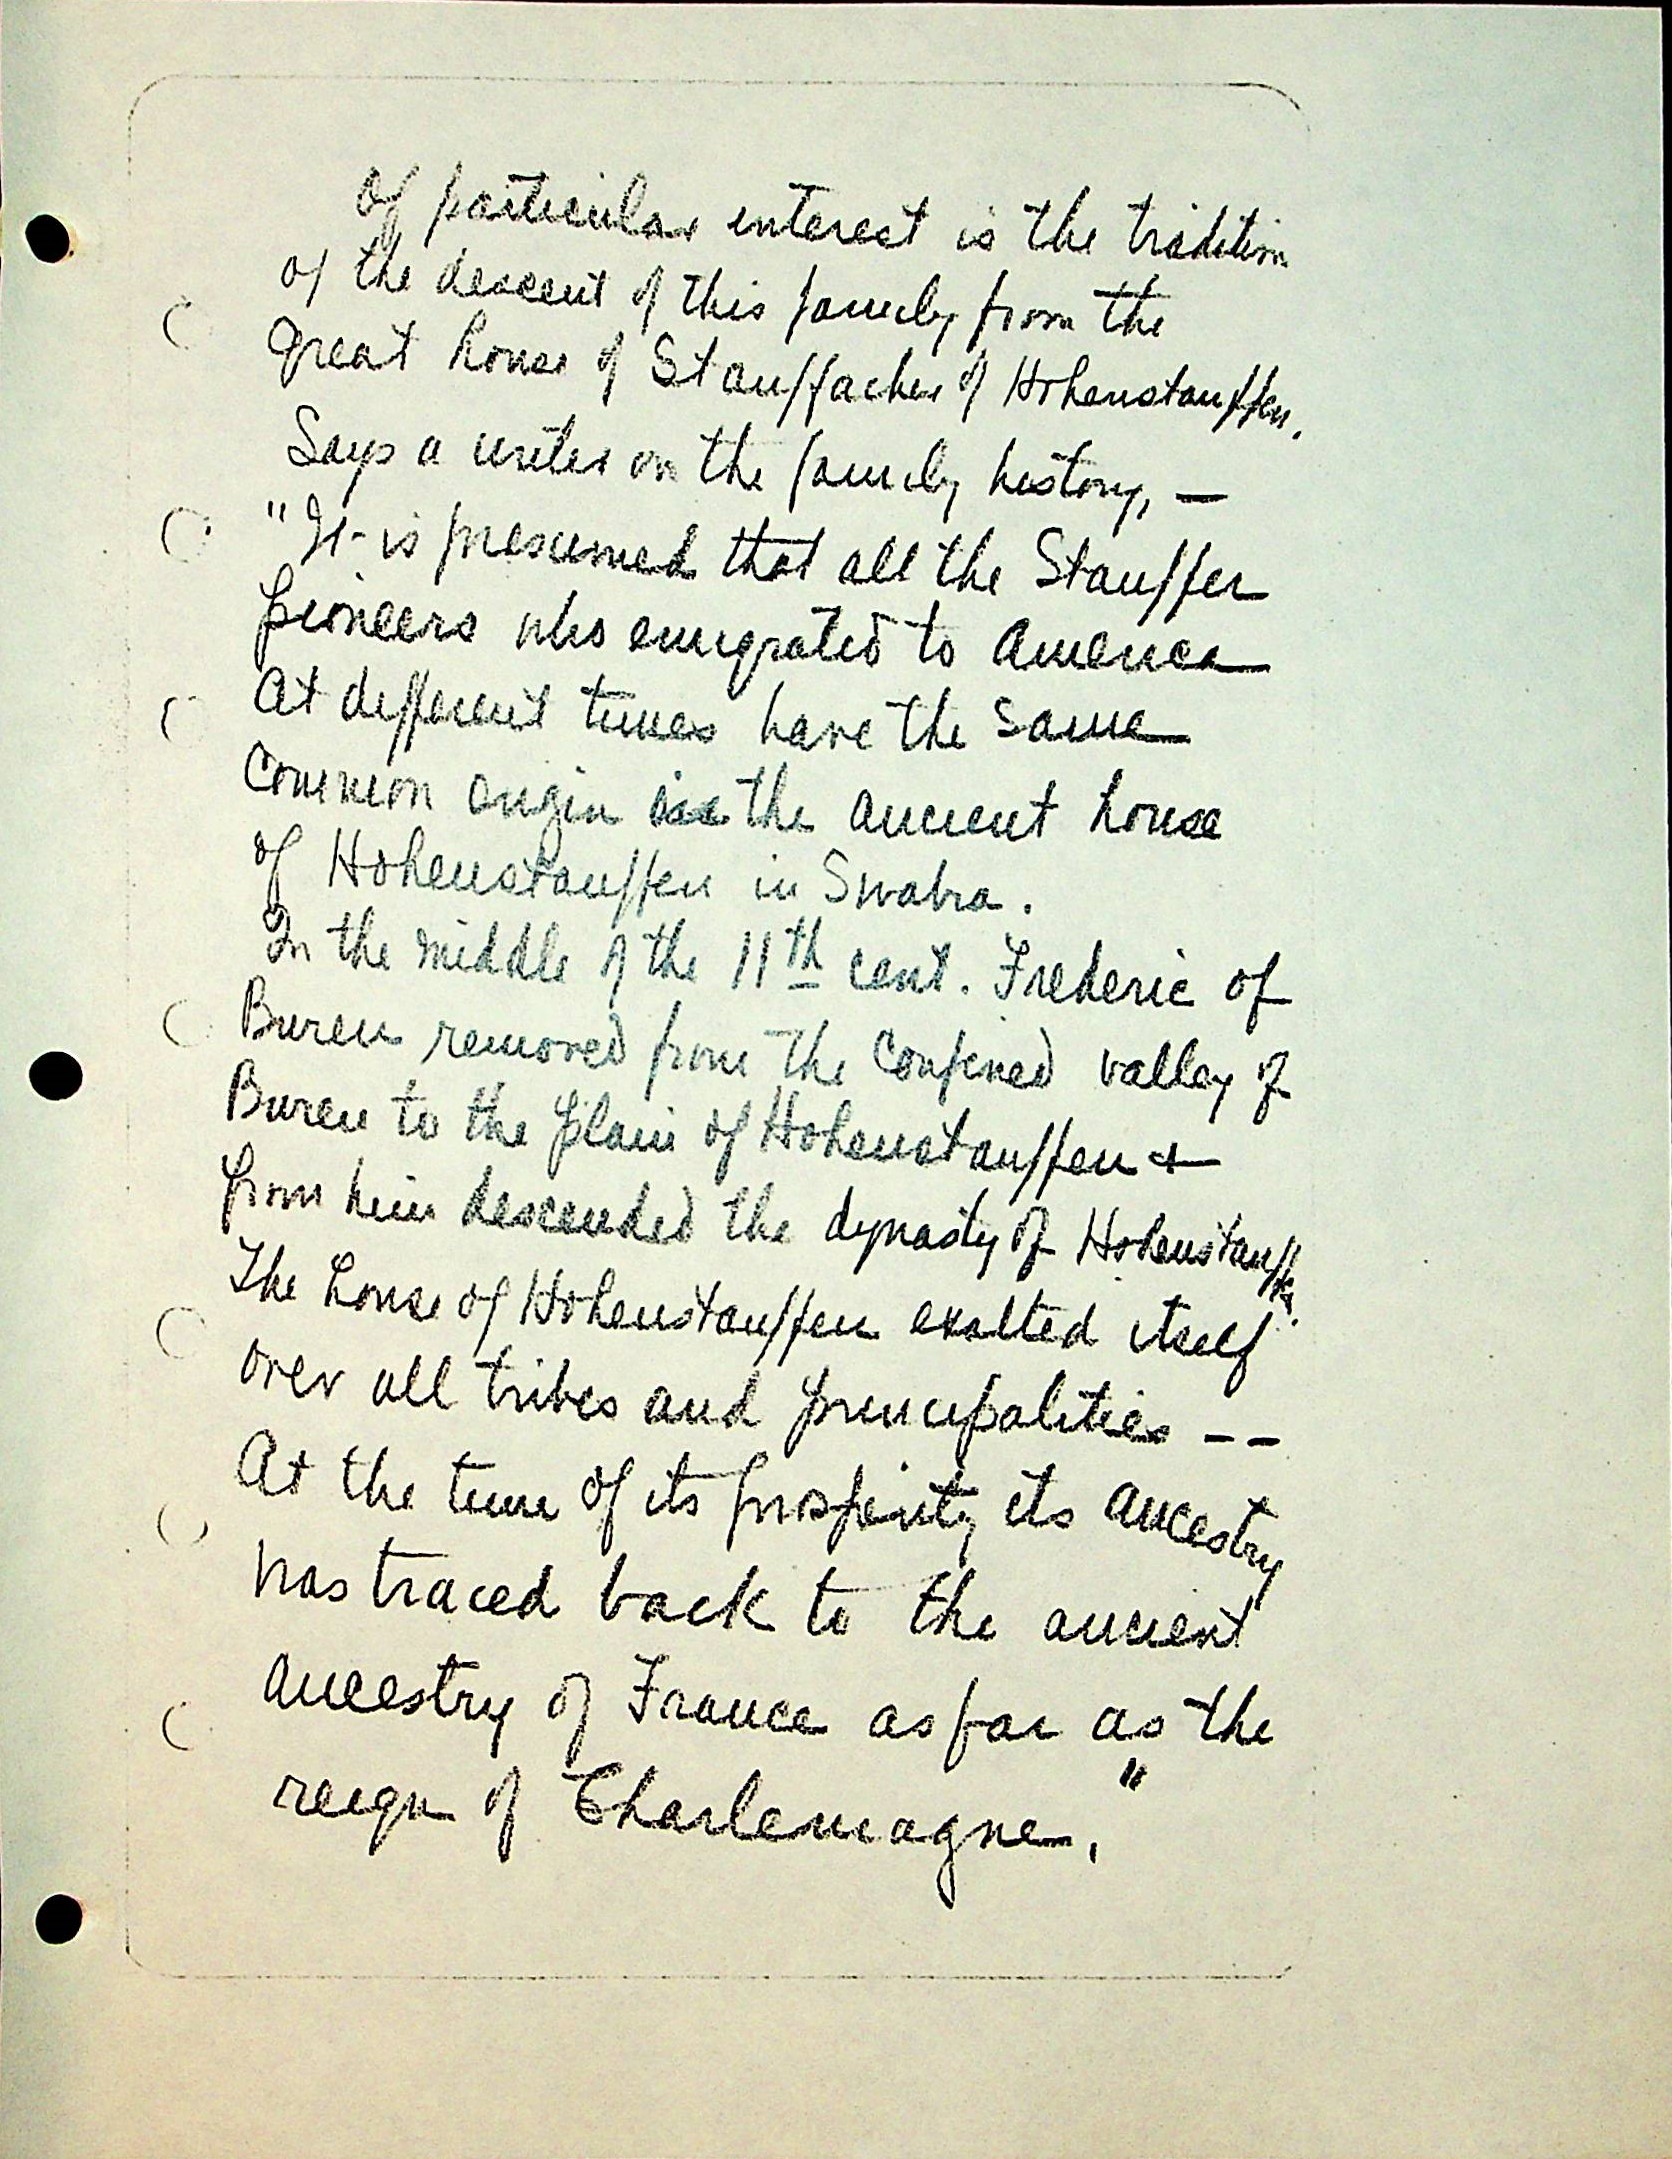 Of particular interest is the tradition
of the descent of this family from the
great house of Stauffacher of Hohenstauffen.
Says a writer on the family history, —
"It is presumed that all the Stauffer
pioneers who emigrated to America
At different times have the same
Common origin in the ancient house
of Hohenstauffen in Swabia.
In the middle of the 11th cent. Frederic of
Buren removed from the Confined valley of
Buren to the plain of Hohenstauffen +
from him descended the dynasty of Hohenstauffen.
The house of Hohenstauffen exalted itself
over all tribes and principalities --
At the time of its prosperity its ancestry
was traced back to the ancient
ancestry of France as far as the
reign of Charlemagne."